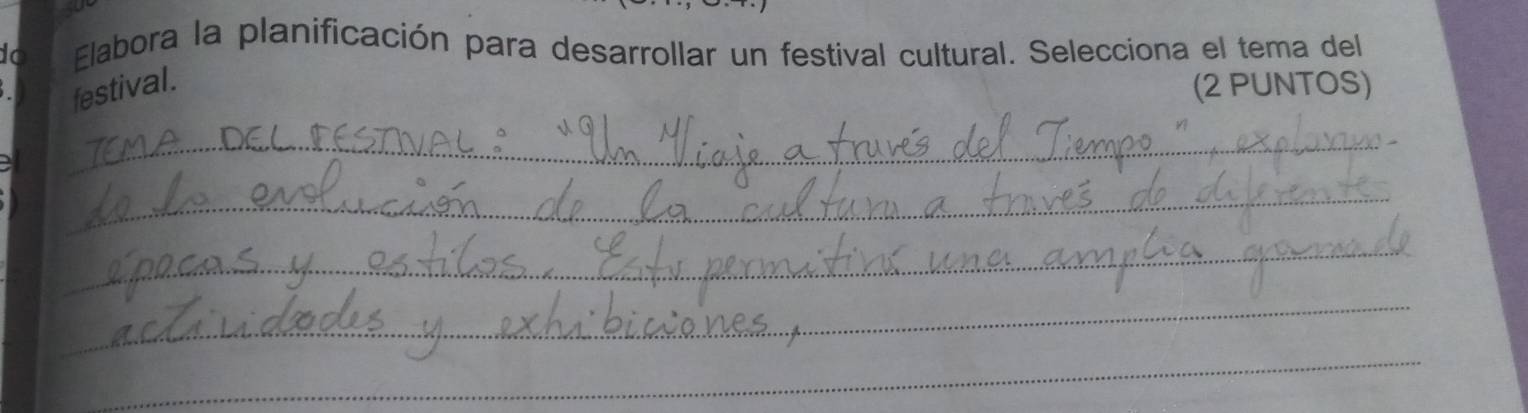 Elabora la planificación para desarrollar un festival cultural. Selecciona el tema del
festival.
(2 PUNTOS)
TEMA DEL FESTIVAL: "Un Viaje a través del Tiempo", exploran-
do la evolución de la cultura a través de diferentes
épocas y estilos. Esto permitirá una amplia gama de
actividades y exhibiciones,